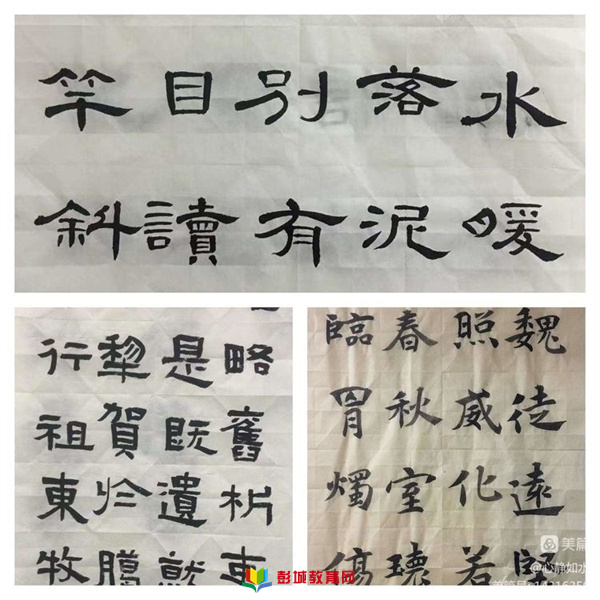 水暖
落泥
别有
目讀
竿斜
略舊析
是既遺就
犂賀於騰
行祖東牧
魏徒遠
照威化若
春秋室
臨胃燭傷
彭城教育网
美篇
@心静如水